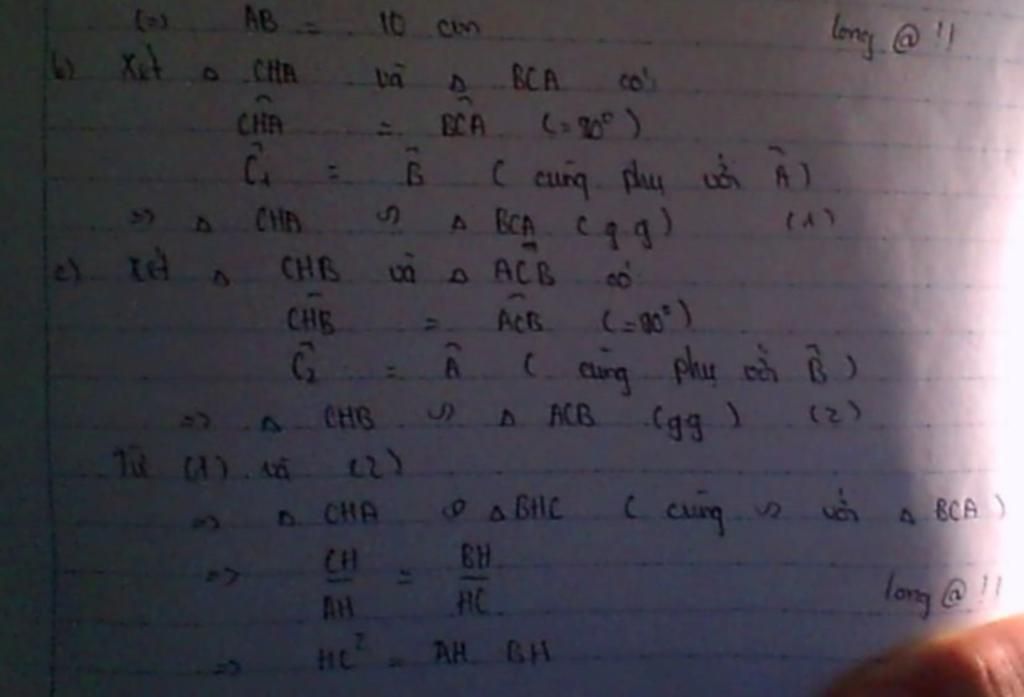 (=) AB = 10 cm
long @ !!
b) Xét Δ CHA và Δ BCA có:
CHA^ = BCA^ (=90°)
Ĉ₁ = B̂ ( cùng phụ với Â )
=> Δ CHA ∽ Δ BCA ( g g ) (1)
c) Xét Δ CHB và Δ ACB có
CHB^ = ACB^ (=90°)
Ĉ₂ = Â ( cùng phụ với B̂ )
=> Δ CHB ∽ Δ ACB (gg ) (2)
Từ (1) và (2)
=> Δ CHA ∽ Δ BHC ( cùng ∽ với Δ BCA )
=> CH/AH = BH/HC
long @ !!
=> HC² = AH BH